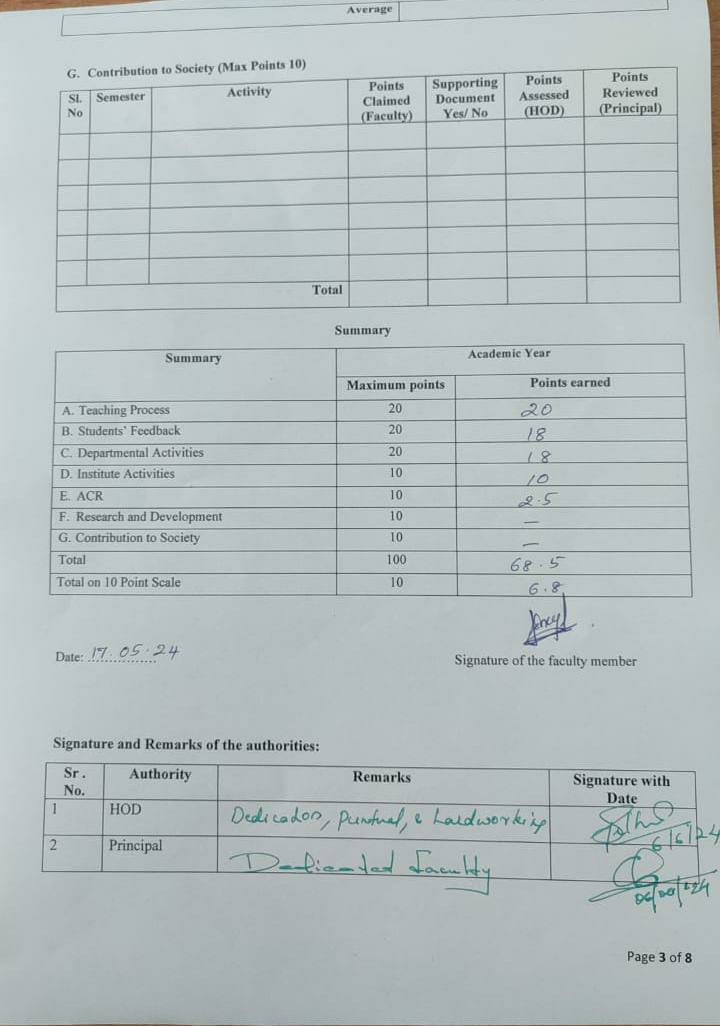 Average
G. Contribution to Society (Max Points 10)
Sl. No Semester Activity Points Claimed (Faculty) Supporting Document Yes/ No Points Assessed (HOD) Points Reviewed (Principal)
Total
Summary
Summary Academic Year
Maximum points Points earned
A. Teaching Process 20 20
B. Students' Feedback 20 18
C. Departmental Activities 20 18
D. Institute Activities 10 10
E. ACR 10 2.5
F. Research and Development 10 —
G. Contribution to Society 10 —
Total 100 68.5
Total on 10 Point Scale 10 6.8
Date: 17.05.24
Signature of the faculty member
Signature and Remarks of the authorities:
Sr. No. Authority Remarks Signature with Date
1 HOD Dedicador, Punctual, & hardworking 6/6/24
2 Principal Dedicated faculty
Page 3 of 8